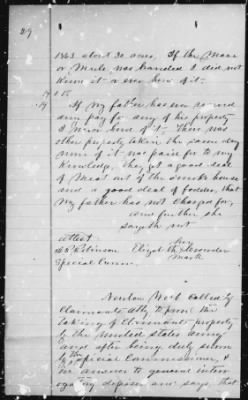 29
1863 about 30 acres. If the Mare
or Mule was branded I did not
know it or ever hear of it.
If my father has ever received
any pay for any of his property
I never heard of it. There was
other property taken the same day
none of it paid for to my
Knowledge. They got a good deal
of Meat out of the smoke house
and a good deal of fodder, that
My father has not Charged for,
and further she
sayeth not
attest her
Robinson Elizabeth Alexander
Special Comm. Mark
Newton Webb Called by
Claimants Atty to prove the
taking of Claimants property
by the United States army
and after being duly sworn
by the Special Commissioner, &
in answer to general interr
ogatory deposes and says that